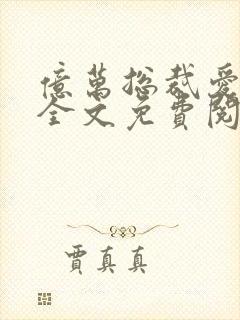 億萬總裁愛
全文免費閱
賈真真